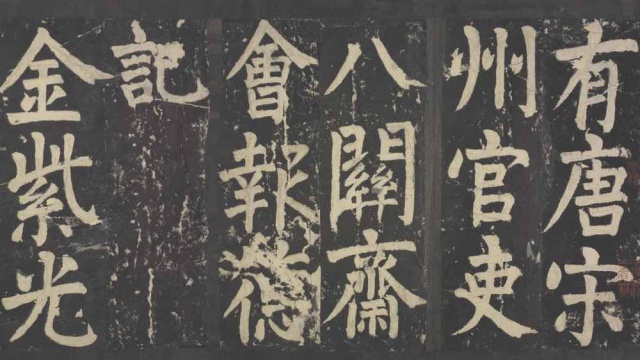 有唐宋
州官吏
八關齋
會報德
記
金紫光